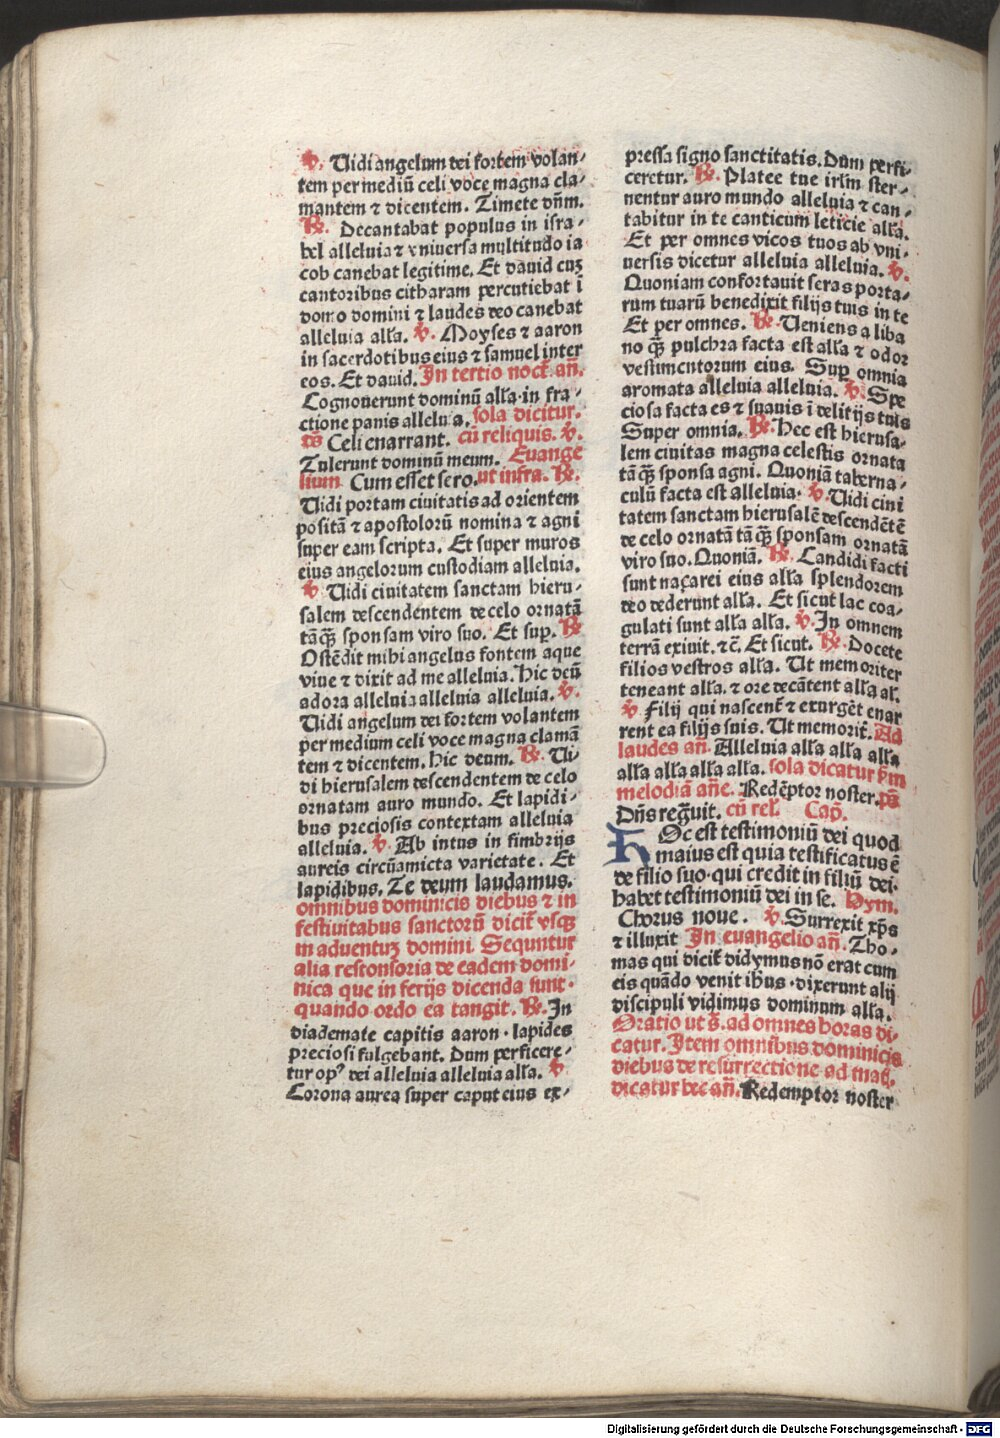 ℣. Uidi angelum dei fortem volan⸗
tem per mediū celi voce magna cla⸗
mantem ⁊ dicentem. Timete dn̄m.
℟. Decantabat populus in isra⸗
hel alleluia ⁊ vniuersa multitudo ia
cob canebat legitime. Et dauid cuʒ
cantoribus citharam percutiebat ī
domo domini ⁊ laudes deo canebat
alleluia alła. ℣. Moyses ⁊ aaron
in sacerdotibus eius ⁊ samuel inter
eos. Et dauid. In tertio noct̄. an̄.
Cognouerunt dominū alła·in fra⸗
ctione panis alleluia. sola dicitur.
ps̄ Celi enarrant. cū reliquis. ℣.
Tulerunt dominū meum. Euange
lium Cum esset sero. ut infra. ℟.
Uidi portam ciuitatis ad orientem
positā ⁊ apostolorū nomina ⁊ agni
super eam scripta. Et super muros
eius angelorum custodiam alleluia.
℣ Uidi ciuitatem sanctam hieru⸗
salem descendentem de celo ornatā
tāꝙ̄ sponsam viro suo. Et sup̄. ℟
Ostēdit mihi angelus fontem aque
viue ⁊ dixit ad me alleluia. Hic deū
adora alleluia alleluia alleluia. ℣.
Uidi angelum dei fortem volantem
per medium celi voce magna clamā
tem ⁊ dicentem. Hic deum. ℟. Ui⸗
di hierusalem descendentem de celo
ornatam auro mundo. Et lapidi⸗
bus preciosis contextam alleluia
alleluia. ℣. Ab intus in fimbrijs
aureis circūamicta varietate. Et
lapidibus. Te deum laudamus.
omnibus dominicis diebus ⁊ in
festiuitabus sanctorū dicit̄ vsqꝫ
in aduentuʒ domini Sequntur
alia responsoria de eadem domi⸗
nica que in ferijs dicenda sunt·
quando ordo ea tangit. ℟. In
diademate capitis aaron·lapides
preciosi fulgebant. Dum perficere⸗
tur opꝰ dei alleluia alleluia alła. ℣
Corona aurea super caput eius ex⸗
pressa signo sanctitatis. Dum perfi⸗
ceretur. ℟. Platee tue irłm ster⸗
nentur auro mundo alleluia ⁊ can⸗
tabitur in te canticum leticie alła.
Et per omnes vicos tuos ab vni⸗
uersis dicetur alleluia alleluia. ℣.
Quoniam confortauit seras porta⸗
rum tuarū benedixit filijs tuis in te
Et per omnes. ℟. Ueniens a liba
no ꝙ̄ pulchra facta est alła ⁊ odor
vestimentorum eius. Sup̄ omnia
aromata alleluia alleluia. ℣. Spe
ciosa facta es ⁊ suauis ī delitijs tuis
Super omnia. ℟. Hec est hierusa⸗
lem ciuitas magna celestis ornata
tāꝙ̄ sponsa agni. Quoniā taberna⸗
culū facta est alleluia· ℣ Uidi ciui
tatem sanctam hierusalē descendētē
de celo ornatā tāꝙ̄ sponsam ornatā
viro suo. Quoniā. ℟. Candidi facti
sunt naçarei eius alła splendorem
deo dederunt alła. Et sicut lac coa⸗
gulati sunt alła alła. ℣. In omnem
terrā exiuit. ⁊c̄. Et sicut. ℟. Docete
filios vestros alła. Ut memoriter
teneant alła. ⁊ ore decātent alła al̄.
℣ Filij qui nascent̄ ⁊ exurgēt enar
rent ea filijs suis. Ut memorit̄. Ad
laudes an̄. Alleluia alła alła alła
alła alła alła alła. sola dicatur p̄m
melodiā an̄e. Redēptor noster. ps̄
Dn̄s regͣuit. cū rel̄. Cap̄.
Hoc est testimoniū dei quod
maius est quia testificatus ē
de filio suo·qui credit in filiū dei·
habet testimoniū dei in se. Hym.
Chorus noue. ℣. Surrexit xp̄s
⁊ illuxit In euangelio an̄. Tho⸗
mas qui dicit̄ didymus nō erat cum
eis quādo venit ih̄us·dixerunt alij
discipuli vidimus dominum alła.
Oratio ut s̄. ad omnes horas di⸗
catur. Item omnibus dominicis
diebus de resurrectione ad mat̄.
dicatur hec an̄. Redemptor noster
Digitalisierung gefördert durch die Deutsche Forschungsgemeinschaft - DFG